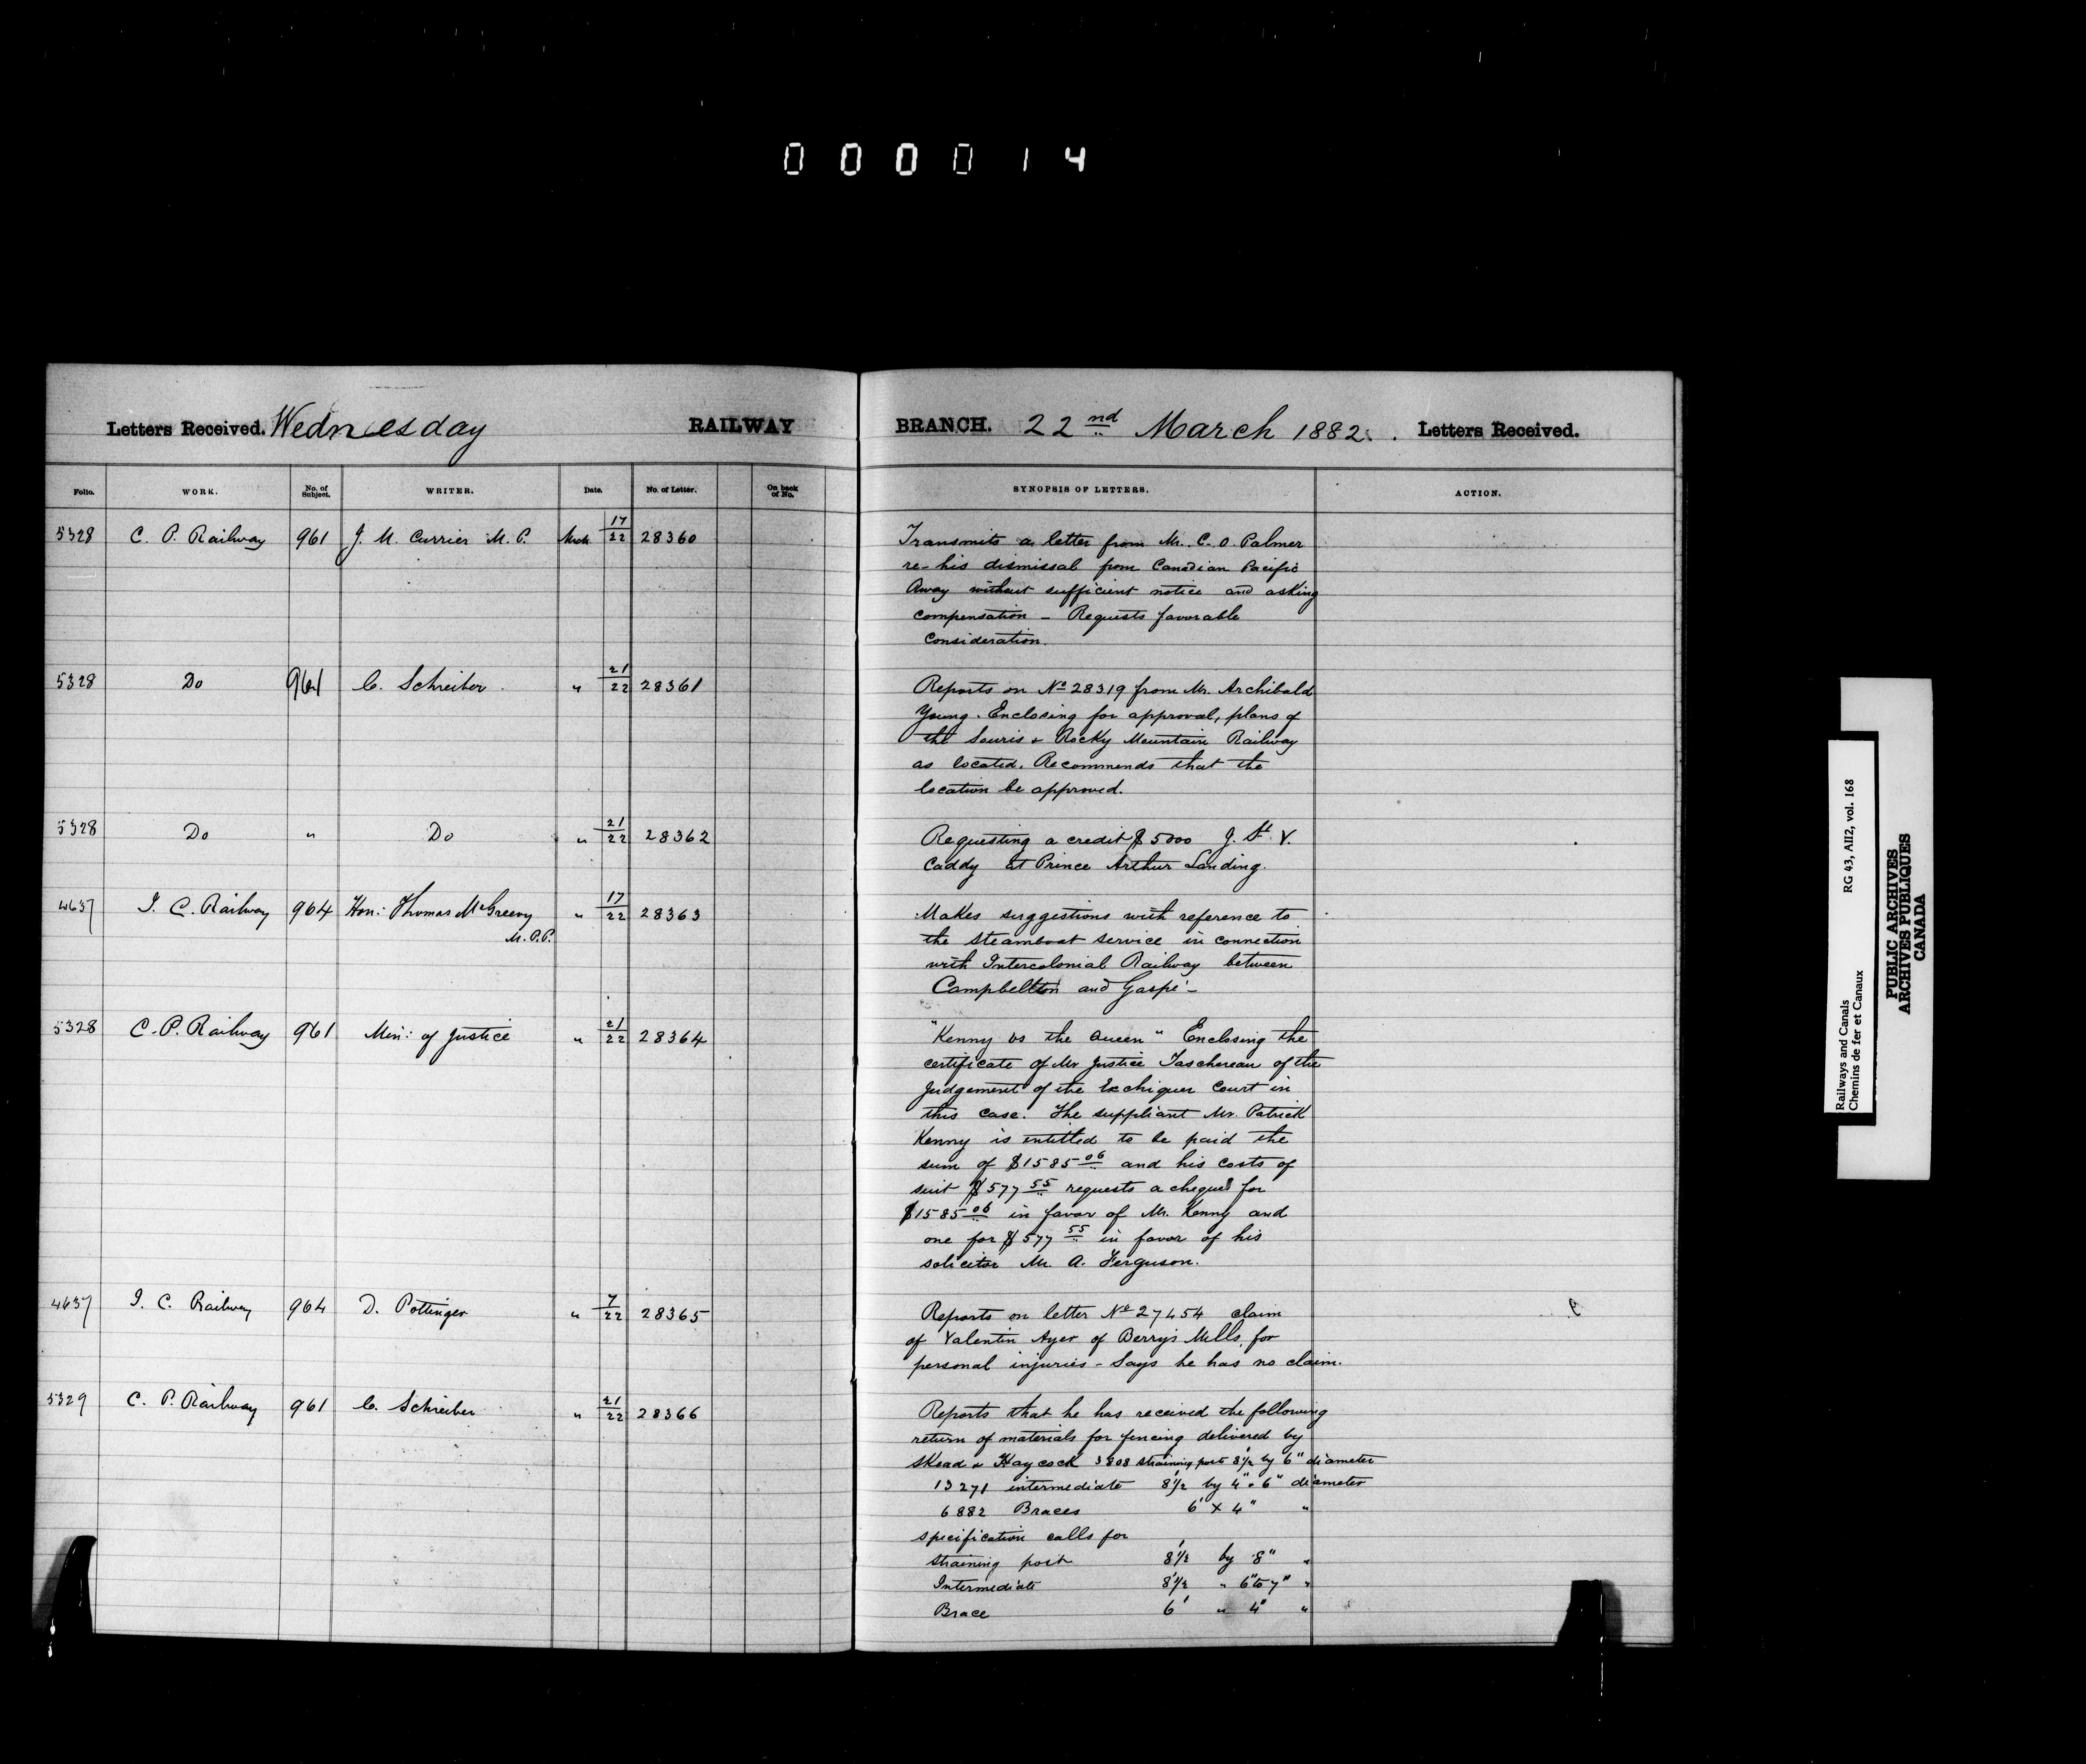 000014
Letters Received. Wednesday RAILWAY BRANCH. 22nd March 1882. Letters Received.
Folio. WORK. No. of Subject. WRITER. Date. No. of Letter. On back of No. SYNOPSIS OF LETTERS. ACTION.
5328 C. P. Railway 961 J. M. Currier M. P. Mch 17/22 28360 Transmits a letter from Mr. C. O. Palmer
re- his dismissal from Canadian Pacific
Rway without sufficient notice and asking
compensation - Requests favorable
consideration.
5328 Do 961 C. Schreiber. " 21/22 28361 Reports on No 28319 from Mr. Archibald
Young. Enclosing for approval, plans of
the Souris & Rocky Mountain Railway
as located. Recommends that the
location be approved.
5328 Do " Do " 21/22 28362 Requesting a credit $5000 J. St. V.
Caddy at Prince Arthur Landing.
4637 I. C. Railway 964 Hon: Thomas McGreevy " 17/22 28363 Makes suggestions with reference to
M. P. P. the steamboat service in connection
with Intercolonial Railway between
Campbellton and Gaspé -
5328 C. P. Railway 961 Min: of Justice " 21/22 28364 "Kenny vs the Queen" Enclosing the
certificate of Mr Justice Taschereau of the
Judgement of the Exchiquer Court in
this case. The suppliant Mr. Patrick
Kenny is entitled to be paid the
sum of $1585 06 and his costs of
suit $577 55 requests a cheque for
$1585 06 in favor of Mr. Kenny and
one for $577 55 in favor of his
solicitor Mr. A. Ferguson.
4637 I. C. Railway 964 D. Pottinger " 7/22 28365 Reports on letter No 27454 claim
of Valentin Ayer of Berry's Mills, for
personal injuries - Says he has no claim.
5329 C. P. Railway 961 C. Schreiber " 21/22 28366 Reports that he has received the following
return of materials for fencing delivered by
Skead & Haycock 3808 straining posts 8½' by 6" diameter
13271 intermediate 8½' by 4" " 6" diameter
6882 Braces 6' x 4" "
specification calls for
straining post 8½' by 8" "
Intermediate 8½' " 6" to 7" "
Brace 6' " 4" "
Railways and Canals RG 43, AII2, vol. 168
Chemins de fer et Canaux
PUBLIC ARCHIVES
ARCHIVES PUBLIQUES
CANADA